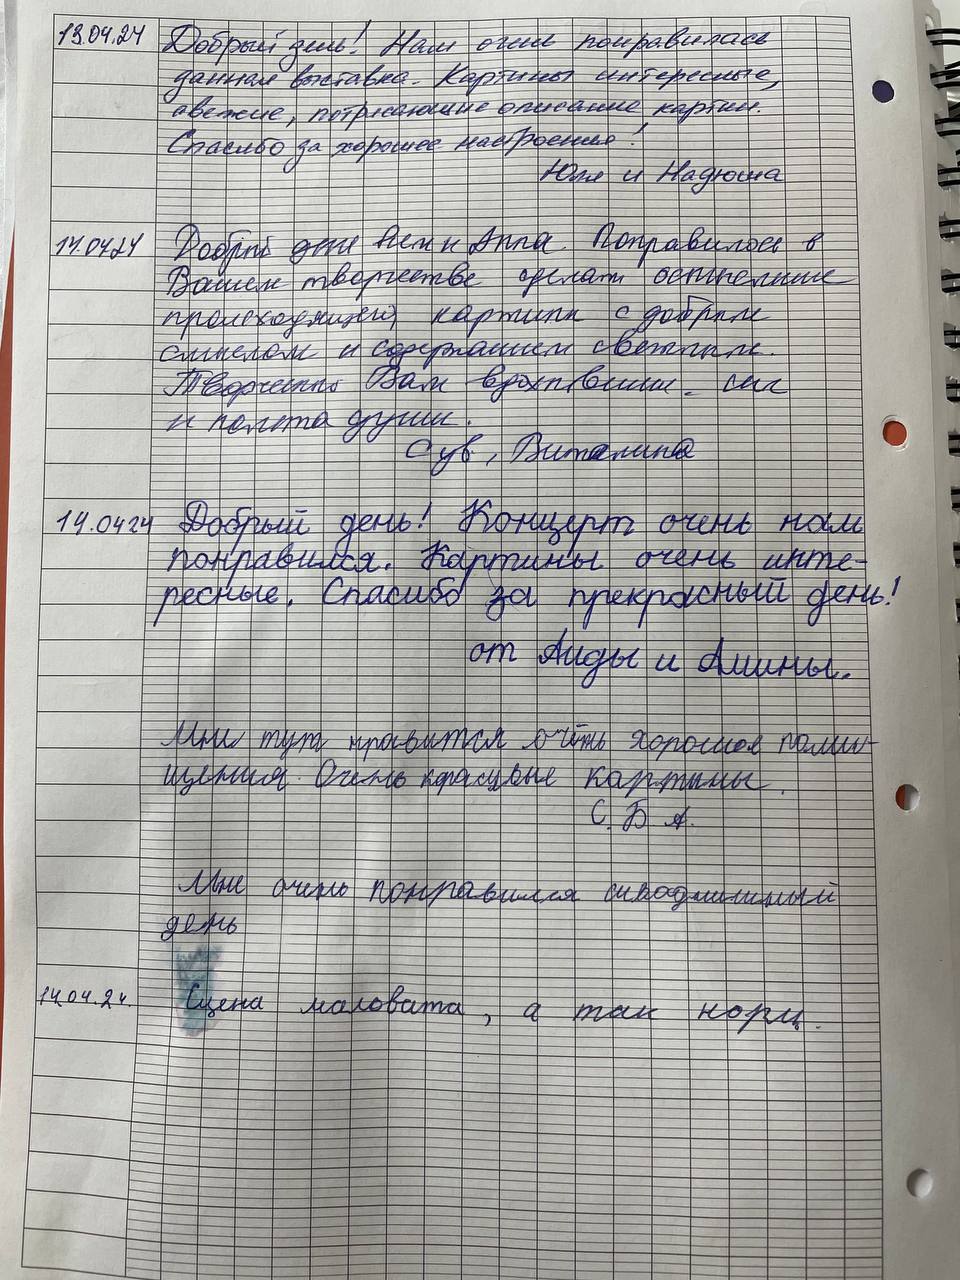 13.04.24 Добрый день! Нам очень понравилась
данная выставка. Картины интересные,
свежие, потрясающие описание картин.
Спасибо за хорошее настроение!
Юля и Надюша
14.04.24 Добрый день Анна. Понравилось в
Вашем творчестве сделать
происходящей, картины с добрым
смыслом и содержанием светлым.
Творческих Вам вдохновения, сил
и полёта души.
С ув, Виталина
14.0424 Добрый день! Концерт очень нам
понравился. Картины очень инте-
ресные. Спасибо за прекрасный день!
от Аиды и Амины.
Мне тут нравится очень хорошая
Очень красивые картины.
С. Б А.
Мне очень понравился
день
14.04.24. Сцена маловата, а так норм.